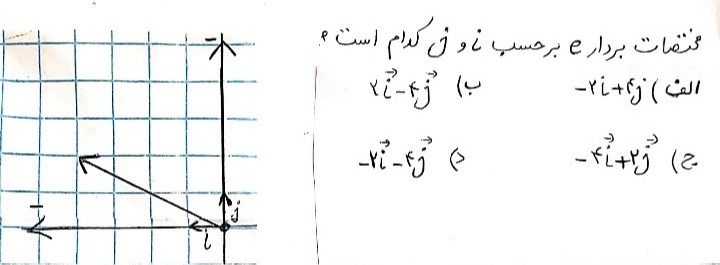 مختصات بردار e برحسب i و j کدام است؟
الف) -۲i+۴j ب) ۲i⃗-۴j⃗
ج) -۴i⃗+۲j⃗ د) -۲i⃗-۴j⃗
j
i